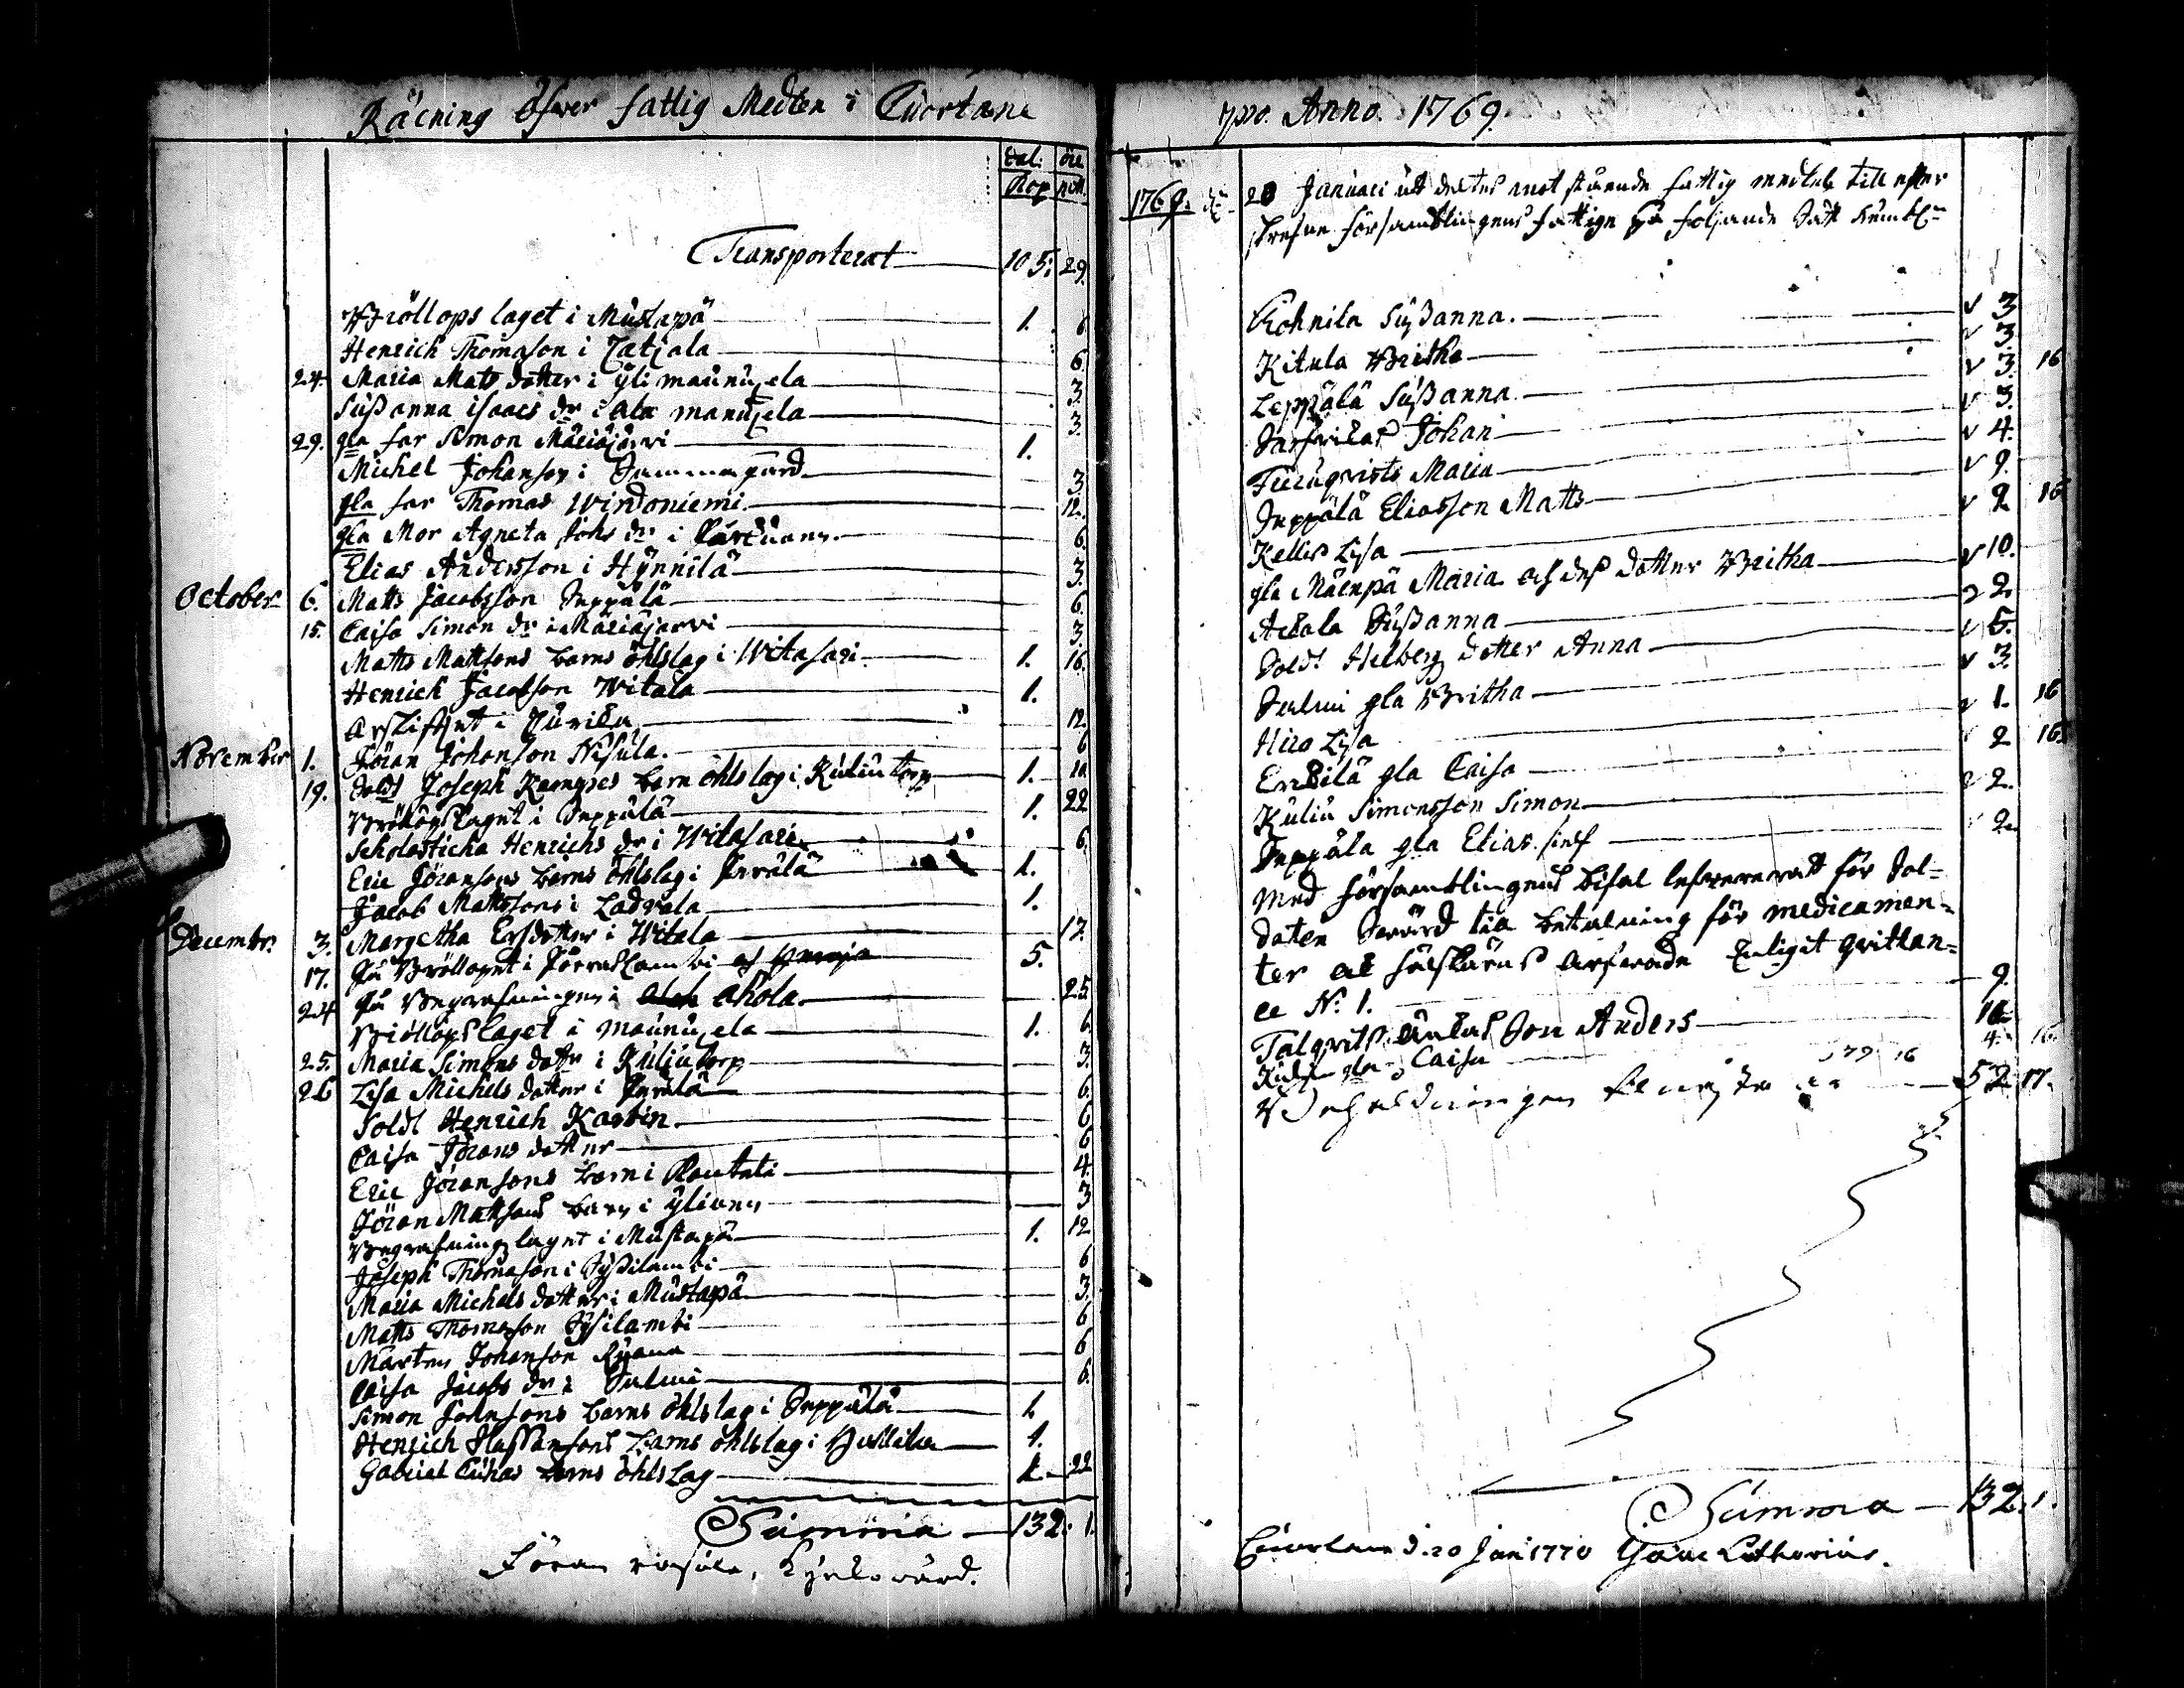 Räcning öfwer fattig Medlen i Cuortane
dal: öre
Kop mt.
Transporterat 105: 29.
Bröllops laget i Mustapä 1. 6
Henrich Thomason i Latjala 6.
24. Maria Mats dotter i ÿli maunuxela 3.
Sußanna isaacs dr i ala manuxela 3.
29. gla far Simon Mäciäjärvi 1.
Michel Johanson i Sammapard 3
gla far Thomas Wirdoniemi 12.
gla Mor Agneta Johs dr i 6.
Elias Andersson i Hÿnnilä 3.
October 6. Matts Jacobsson Seppälä 6.
15. Caisa Simon dr i Mäciäjärvi 3.
Matts Mattsons barns öhlslag i Witasari 1. 16.
Henrich Jacobson Witala 1.
i 12.
November 1. Jöran Johanson Nisula. 6
19. Joseph barn öhlslag i Kuliu torp 1. 10
Bröllops laget i Seppälä 1. 22
Scholasticha Henrichs dr i Witasari 6.
Eric Jöransons barns öhlslag i Perälä 1.
Jacob Mattssons i Ladvala 1.
Decembr: 3. Margetha Ersdotter i Witala 17.
17. På Bröllopet i 5.
24 På Begrafningen i Ahola. 25.
Bröllops laget i maunuxela 1. 6
25. Maria Simons dottr i Kuliu torp 3.
26 Lisa Michels dotter i Perälä 6.
Soldt Henrich Karbin. 6
Caisa Jörans dotter 6
Eric Jöransons barn i Rantala 4.
Jöran Matsons barn i 3
Begrafningz laget i Mustapä 1. 12
Joseph Thomason i Sysilambi 6
Maria Michels dotter i Mustapä 3.
Matts Thomasson Sysilambi 6
Mårten Johanson 6
Caisa Jacobs dr i Salmi 6.
Simon Johnsons barns öhlslag i Seppälä 1.
Henrich barns öhlslag i 1.
Gabriel barns öhlslag 1. 22
Summa 132: 1.
Jöran
pro. Anno. 1769.
1769. 20 Januari ut deltes mot stående fattig medlel till efter
skrefne församblingens fattige på följande
Kohnila Sußanna. 3
Kitula Britha 3.
Leppälä Sußanna 3. 16
Johan 3.
Maria 4.
Seppälä Eliasson Matts 9.
Kellis Lisa 2 16
gla Mäenpä Maria och des dotter Britha 10.
Sußanna 2.
Soldt Helberg dotter Anna 5.
Salmi gla Britha 3.
Hiro Lisa 1. 16
Erckilä gla Caisa 2 16.
Kuliu Simonsson Simon 2.
Seppälä gla Elias 2.
Med församblingens bifal lefvererat för Sol=
daten Swärd till betalning för medicamen=
ter Enligit qvittan=
ce No. 1. 9.
Son Anders 10
gla Caisa 4 16.
79. 16
Behåldningen 52 17.
Summa 132. 1.
Cuortane d. 20 Jan 1770